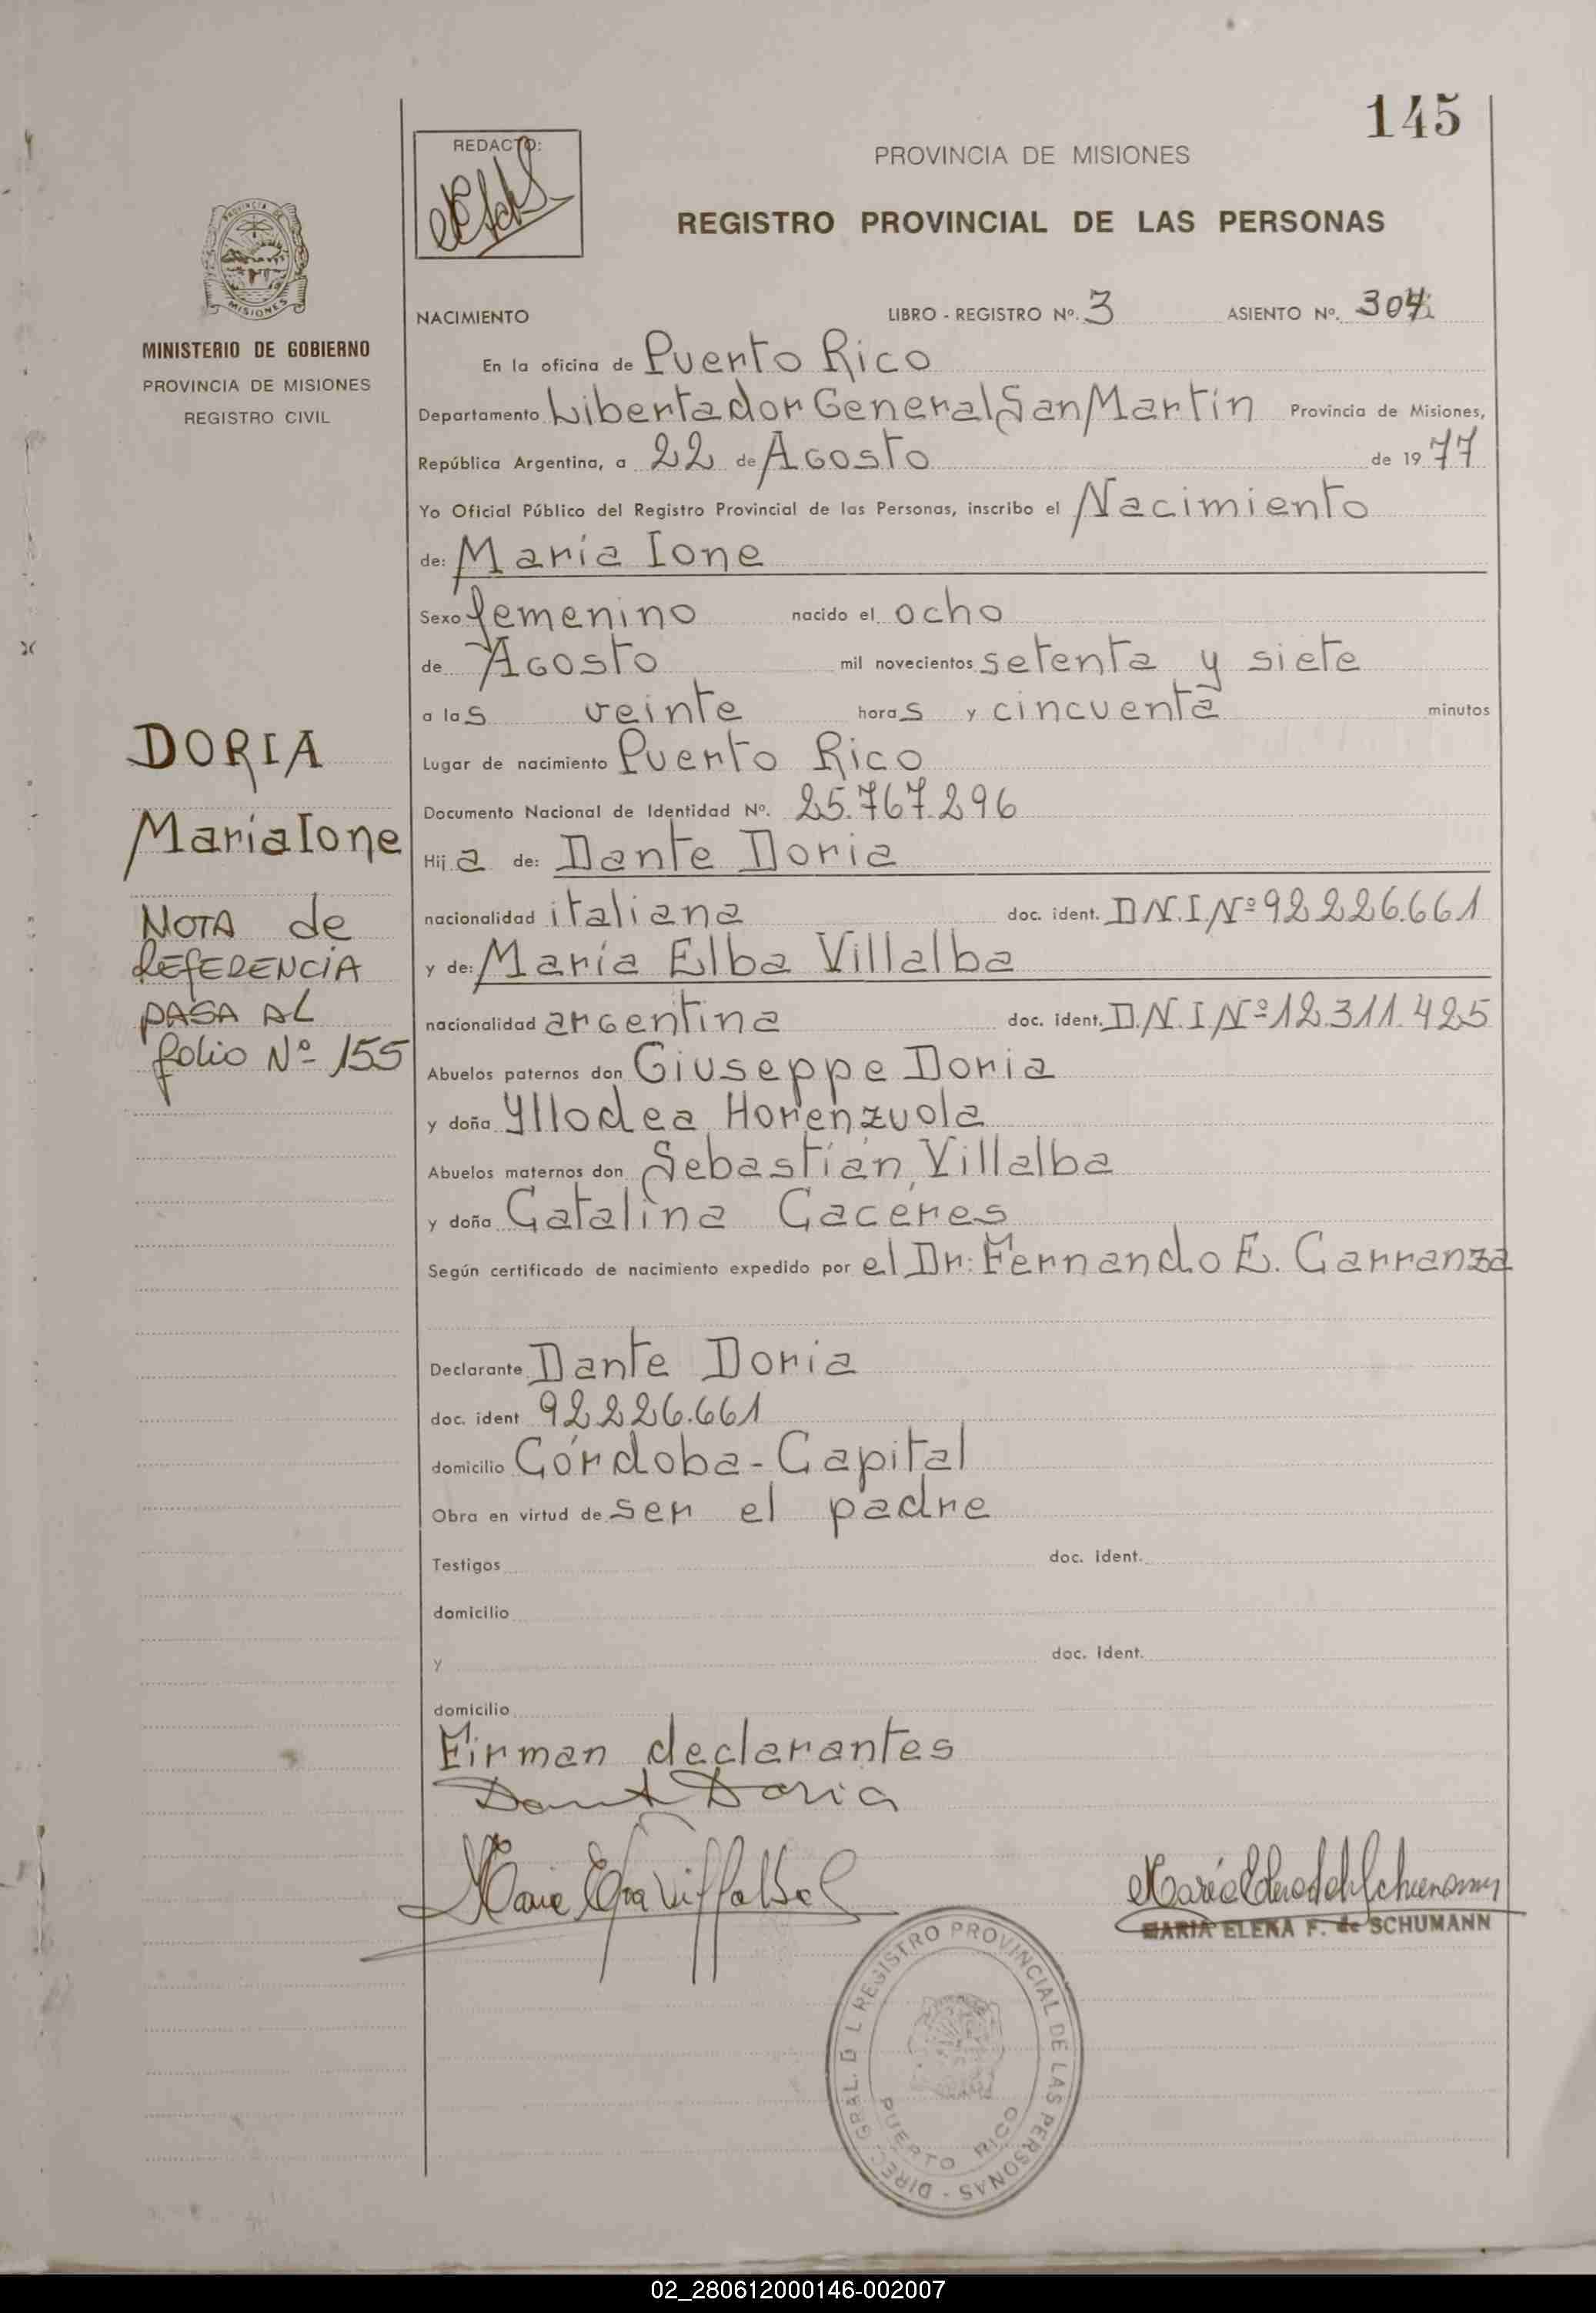 145
REDACTO:
PROVINCIA DE MISIONES
REGISTRO PROVINCIAL DE LAS PERSONAS
PROVINCIA DE
MISIONES
MINISTERIO DE GOBIERNO
PROVINCIA DE MISIONES
REGISTRO CIVIL
NACIMIENTO LIBRO - REGISTRO Nº. 3 ASIENTO Nº. 304
En la oficina de Puerto Rico
Departamento Libertador General San Martín Provincia de Misiones,
República Argentina, a 22 de Agosto de 1977
Yo Oficial Público del Registro Provincial de las Personas, inscribo el Nacimiento
de: María Ione
Sexo femenino nacido el ocho
de Agosto mil novecientos setenta y siete
a las veinte horas y cincuenta minutos
Lugar de nacimiento Puerto Rico
Documento Nacional de Identidad Nº. 25.767.296
Hija de: Dante Doria
nacionalidad italiana doc. ident. D.N.I.Nº 92.226.661
y de: María Elba Villalba
nacionalidad argentina doc. ident. D.N.I Nº 12.311.425
Abuelos paternos don Giuseppe Doria
y doña Yllodea Horenzuola
Abuelos maternos don Sebastián Villalba
y doña Catalina Cacéres
Según certificado de nacimiento expedido por el Dr: Fernando E. Carranza
Declarante Dante Doria
doc. ident 92.226.661
domicilio Córdoba - Capital
Obra en virtud de ser el padre
Testigos doc. ident.
domicilio
y doc. ident.
domicilio
Firman declarantes
DORIA
María Ione
NOTA de
REFERENCIA
PASA AL
folio Nº 155
Dante Doria
Maria Elba Villalba
MARIA ELENA F. de SCHUMANN
DIREC. GRAL. D L REGISTRO PROVINCIAL DE LAS PERSONAS -
PUERTO RICO
02_280612000146-002007